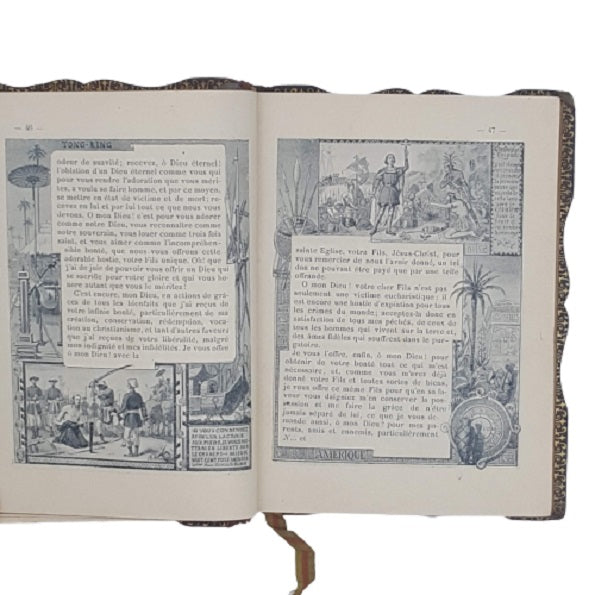 — 46 —
TONG-KING
odeur de suavité; recevez, ô Dieu éternel!
l'oblation d'un Dieu éternel comme vous qui
pour vous rendre l'adoration que vous méri-
tez, a voulu se faire homme, et par ce moyen,
se mettre en état de victime et de mort; re-
cevez en lui et par lui tout ce que nous vous
devons. O mon Dieu! c'est pour vous adorer
comme notre Dieu, vous reconnaître comme
notre souverain, vous louer comme trois fois
saint, et vous aimer comme l'incompréhen-
sible bonté, que nous vous offrons cette
adorable hostie, votre Fils unique. Oh! que
j'ai de joie de pouvoir vous offrir un Dieu qui
se sacrifie pour votre gloire et qui vous ho-
nore autant que vous le méritez!
C'est encore, mon Dieu, en actions de grâ-
ces de tous les bienfaits que j'ai reçus de
votre infinie bonté, particulièrement de ma
création, conservation, rédemption, voca-
tion au christianisme, et tant d'autres faveurs
que j'ai reçues de votre libéralité, malgré
mon indignité et mes infidélités. Je vous offre
ô mon Dieu! avec la
— 47 —
sainte Eglise, votre Fils, Jésus-Christ, pour
vous remercier de nous l'avoir donné, un tel
don ne pouvant être payé que par une telle
offrande.
O mon Dieu! votre cher Fils n'est pas
seulement une victime eucharistique; il
est encore une hostie d'expiation pour tous
les crimes du monde; acceptez-la donc en
satisfaction de tous mes péchés, de ceux de
tous les hommes qui vivent sur la terre et
des âmes fidèles qui souffrent dans le pur-
gatoire.
Je vous l'offre, enfin, ô mon Dieu! pour
obtenir de votre bonté tout ce qui m'est
nécessaire, et, comme vous m'avez déjà
donné votre Fils et toutes sortes de biens,
je vous offre ce même Fils pour qu'en sa fa-
veur vous daigniez m'en conserver la pos-
session et me faire la grâce de n'être
jamais séparé de lui, ce que je vous de-
mande aussi, ô mon Dieu! pour mes pa-
rents, amis et ennemis, particulièrement
N... et
AMÉRIQUE